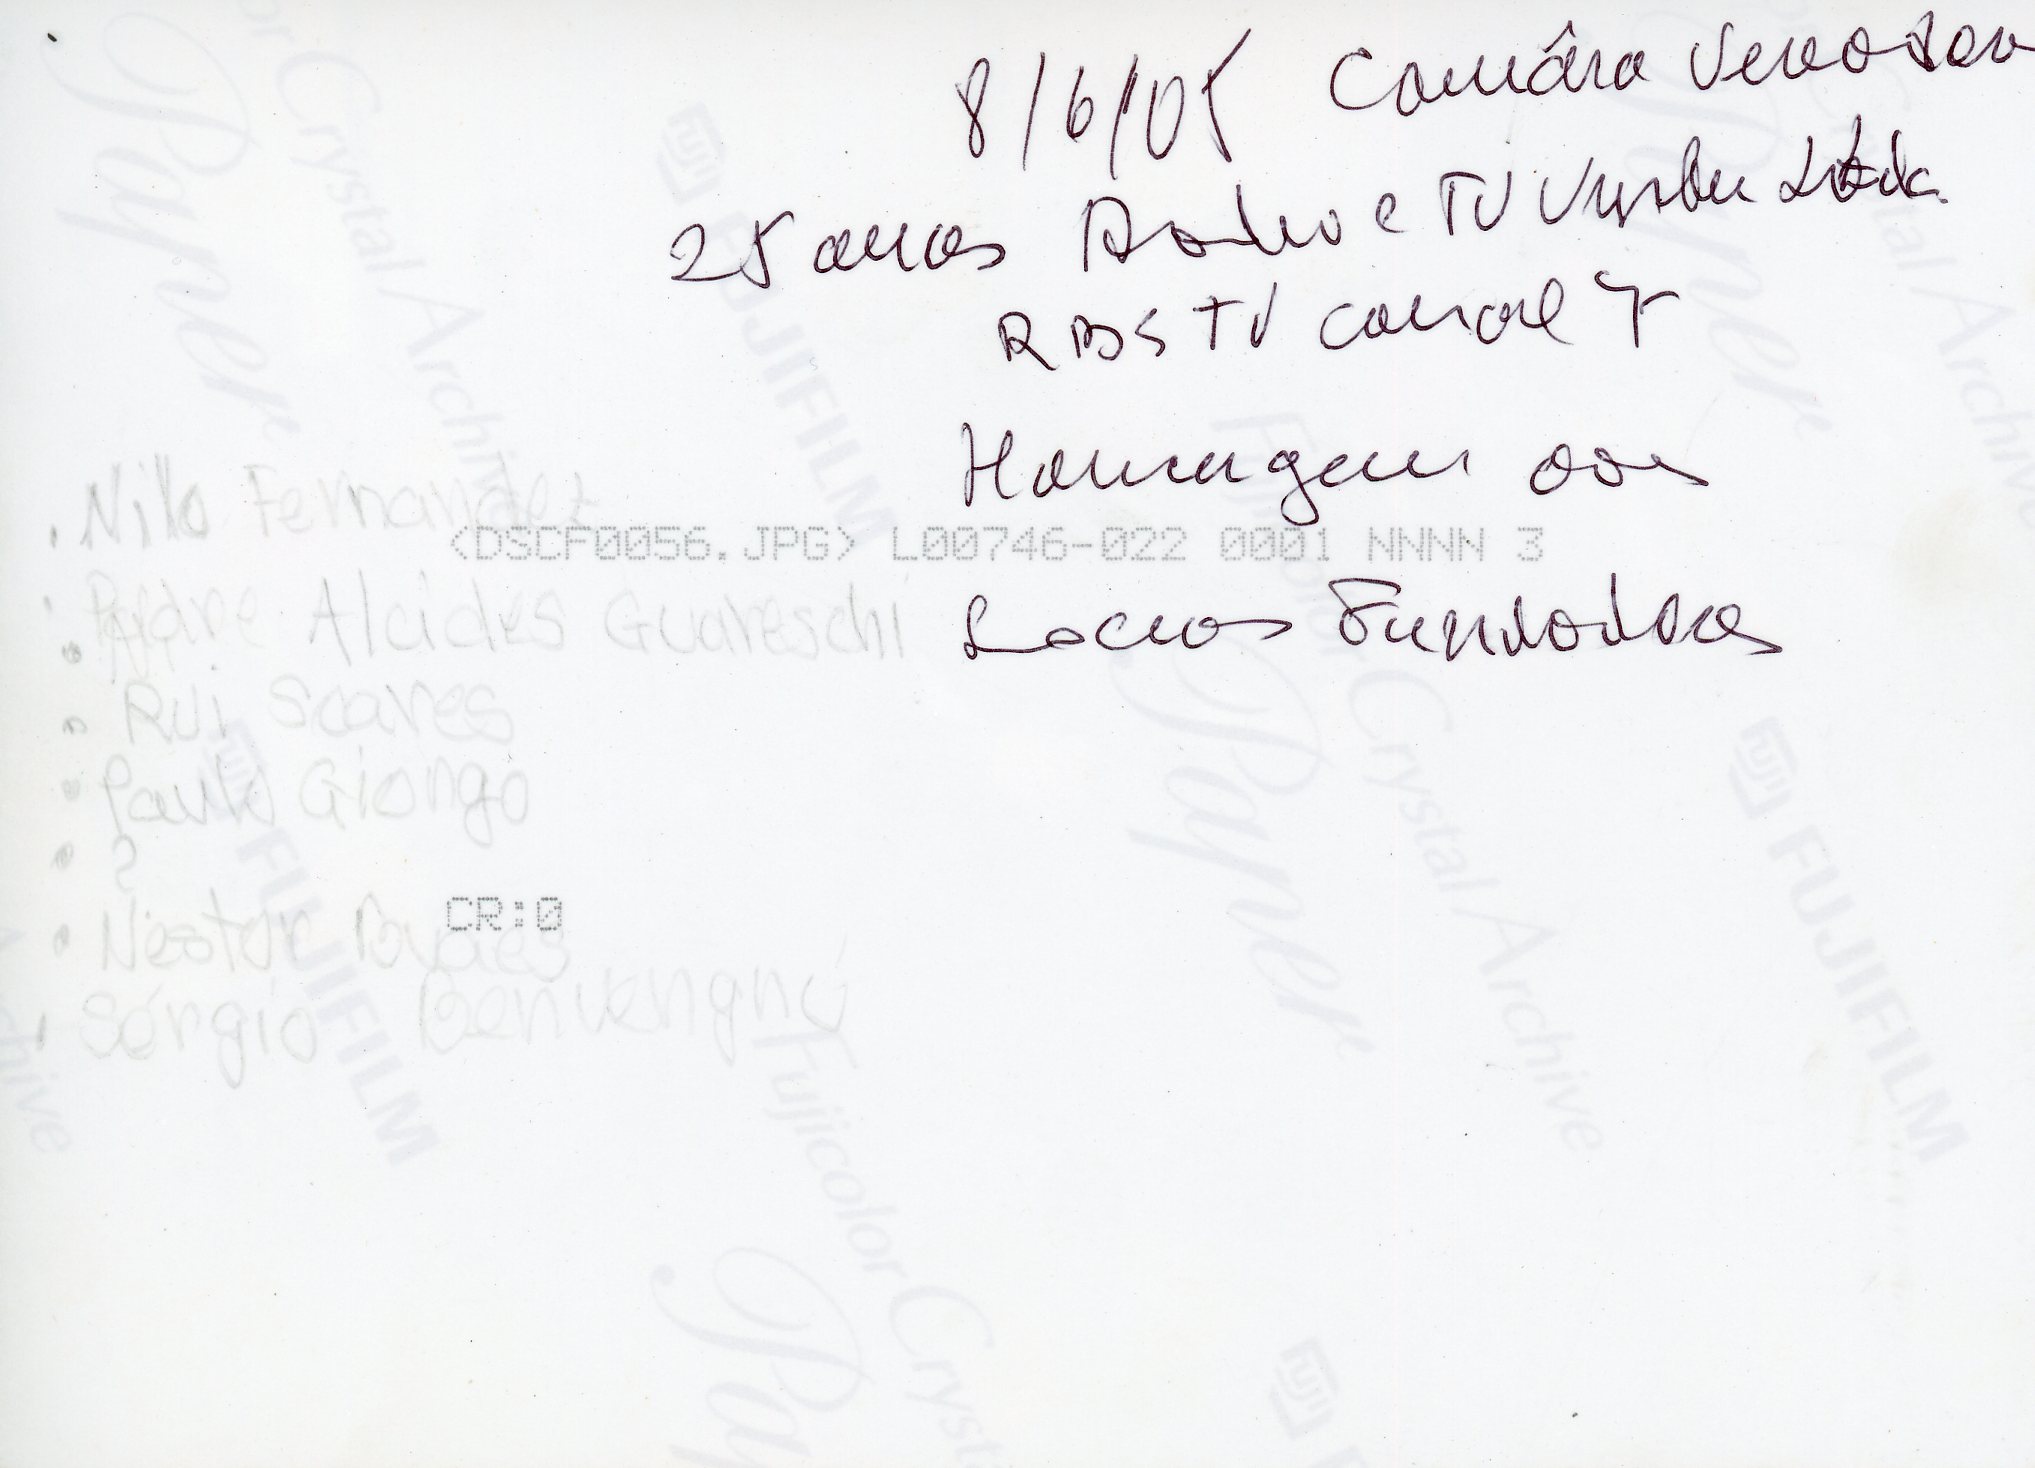 8/6/05 Camâra Vereador
25 anos Radio e TV Umbu Ltda
RBS TV canal 7
Homenagem aos
Nillo Fernandez
<DSCF0056.JPG> L00746-022 0001 NNNN 3
Padre Alcides Guareschi
Socios Fundadores
Rui Soares
Paulo Giongo
?
Nestor
CR:0
Sérgio Benvengnú
Fujicolor Crystal Archive
Paper
FUJIFILM